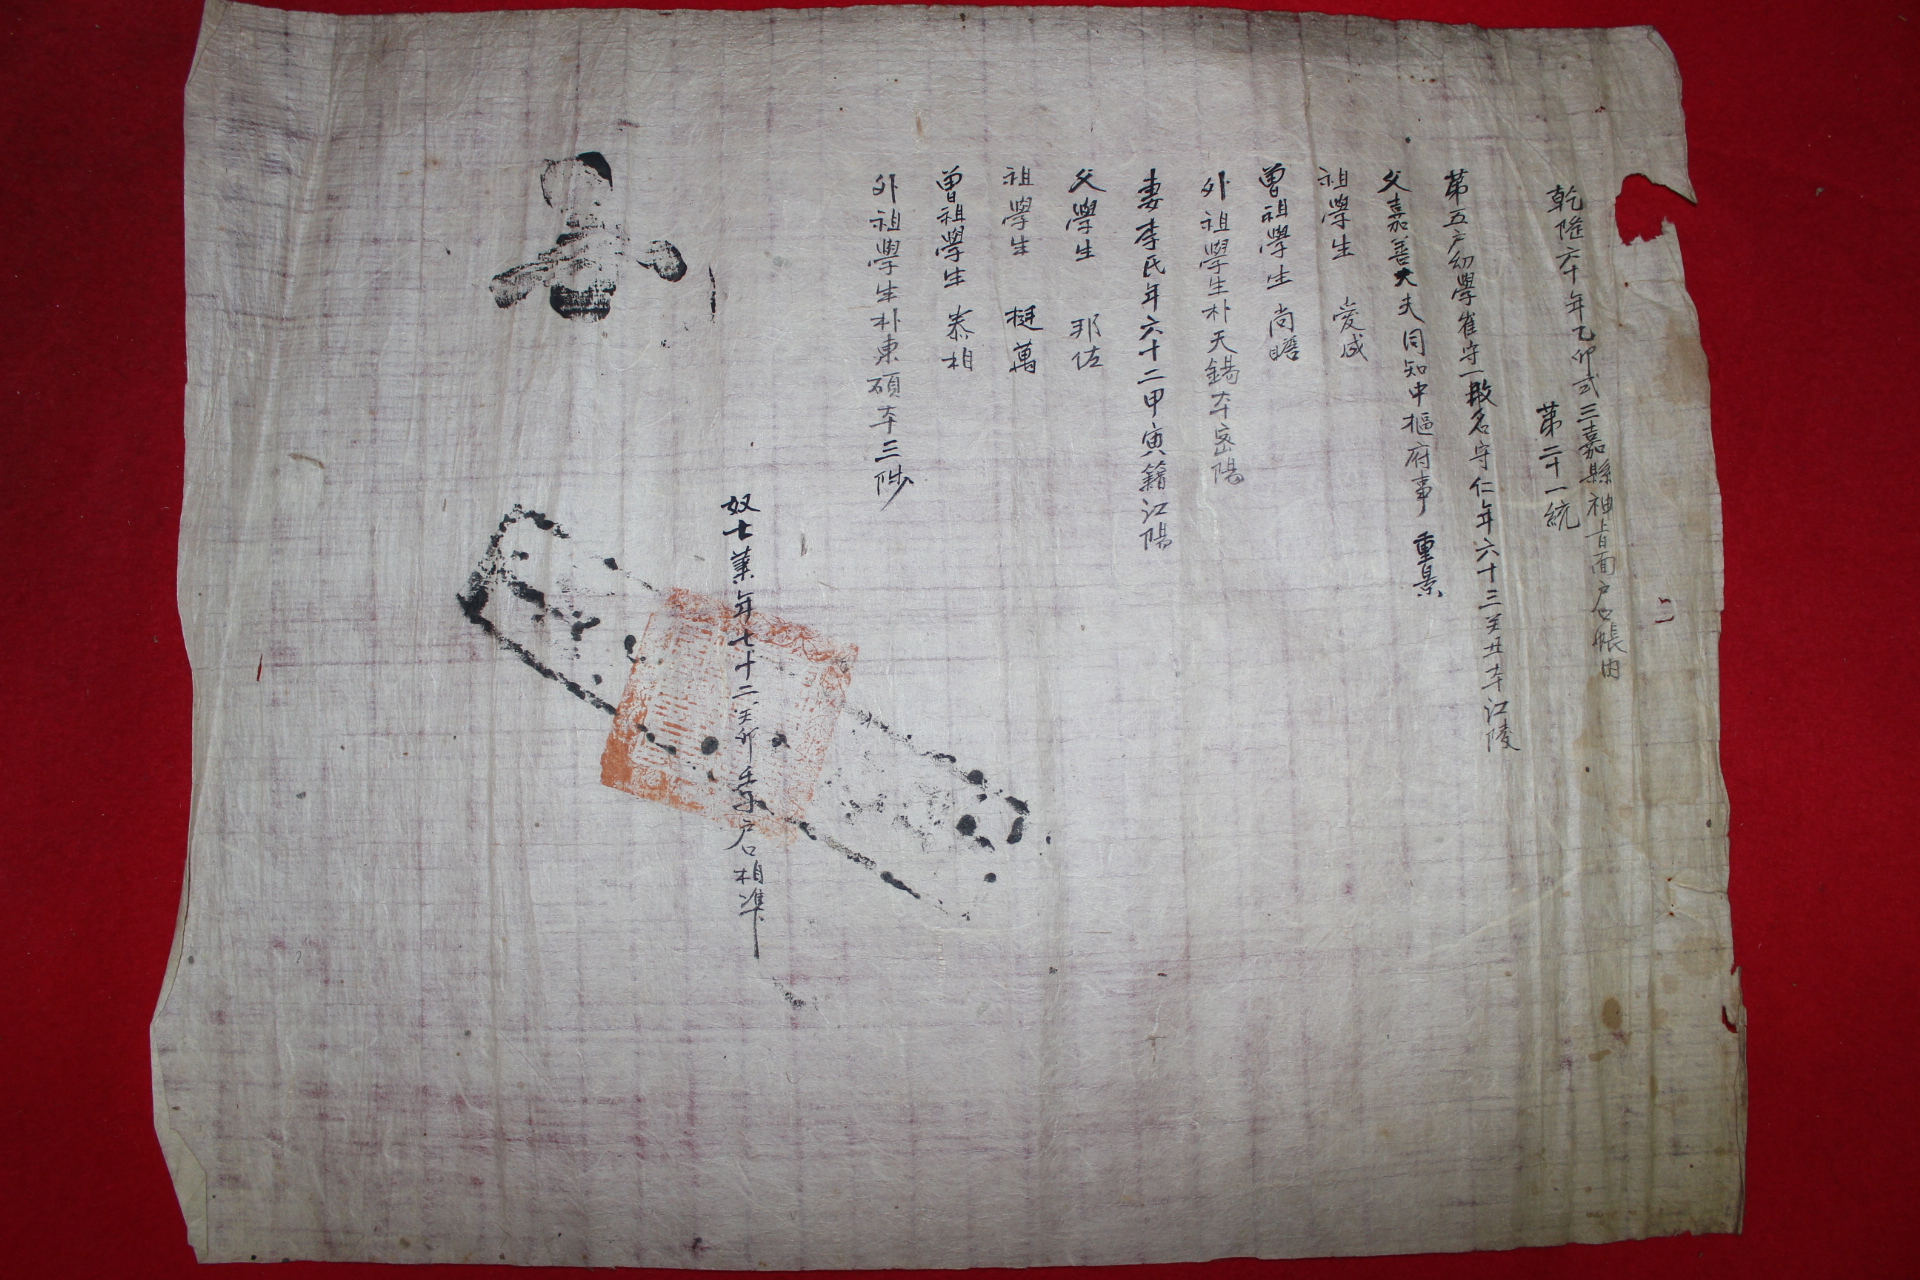 乾隆六十年乙卯式三嘉縣神旨面戶口帳內
第二十一統
第五戶幼學崔守一改名守仁年六十三癸丑本江陵
父嘉善大夫同知中樞府事 重景
祖學生 愛成
曾祖學生 尚瞻
外祖學生朴天錫本密陽
妻李氏年六十二甲寅籍江陽
父學生 邦佐
祖學生 挺萬
曾祖學生 泰相
外祖學生朴東碩本三陟
奴士業年七十二癸卯壬子戶口相準